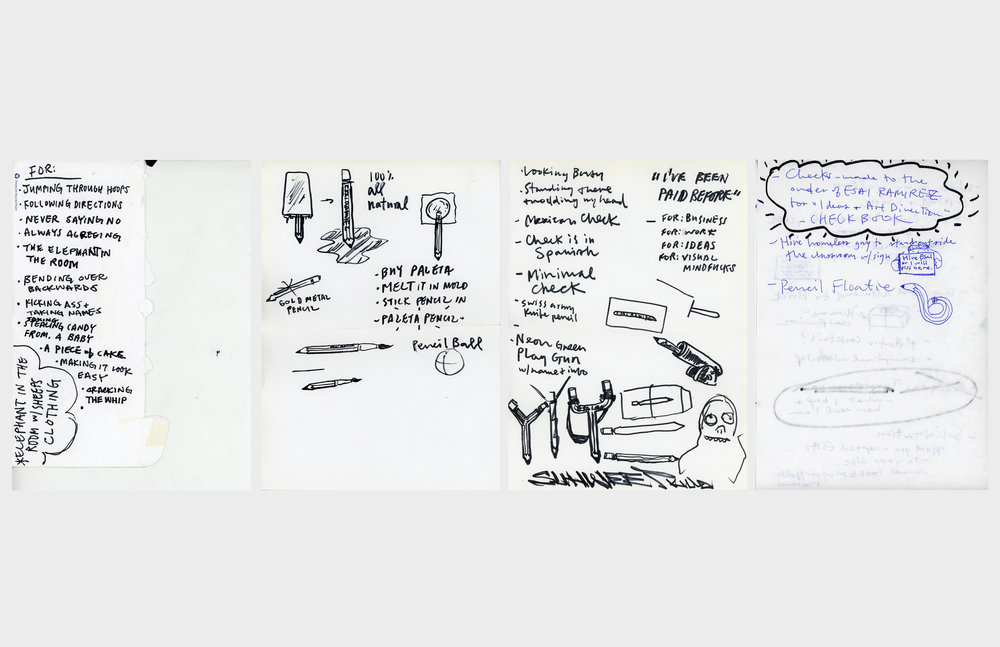 FOR:
· JUMPING THROUGH HOOPS
· FOLLOWING DIRECTIONS
· NEVER SAYING NO
· ALWAYS AGREEING
· THE ELEPHANT IN
THE ROOM
· BENDING OVER
BACKWARDS
· KICKING ASS +
TAKING NAMES
· STEALING CANDY
FROM A BABY
· A PIECE of CAKE
· MAKING IT LOOK
EASY
· CRACKING
THE WHIP
*ELEPHANT IN THE
ROOM W/ SHEEPS
CLOTHING
100%
all
natural
GOLD METAL
PENCIL
· BUY PALETA
· MELT IT IN MOLD
· STICK PENCIL IN
- PALETA PENCIL -
Pencil Ball
· Looking Busy
· Standing there
nodding my head
- Mexican Check
- Check is in
Spanish
- Minimal
Check
- Swiss army
Knife pencil
- Neon Green
Play Gun
w/ name + info
"I'VE BEEN
PAID BEFORE"
- FOR: BUSINESS
FOR: WORK
FOR: IDEAS
FOR: VISUAL
MINDFUCKS
- Checks - made to the
order of ESAI RAMIREZ
for "Ideas + Art Direction"
- CHECKBOOK
- Hire homeless guy to stand outside
the classroom w/ sign
Hire Esai
or I will
piss here.
- Pencil Floatie